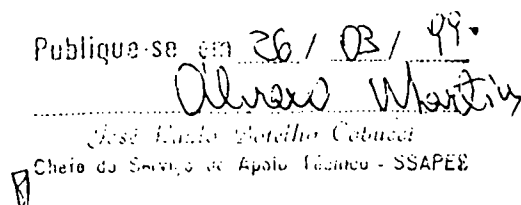 Publique-se em 26 / 03 / 99.
Álvaro Martins
José Paulo Botelho Cobucci
Chefe do Serviço de Apoio Técnico - SSAPES